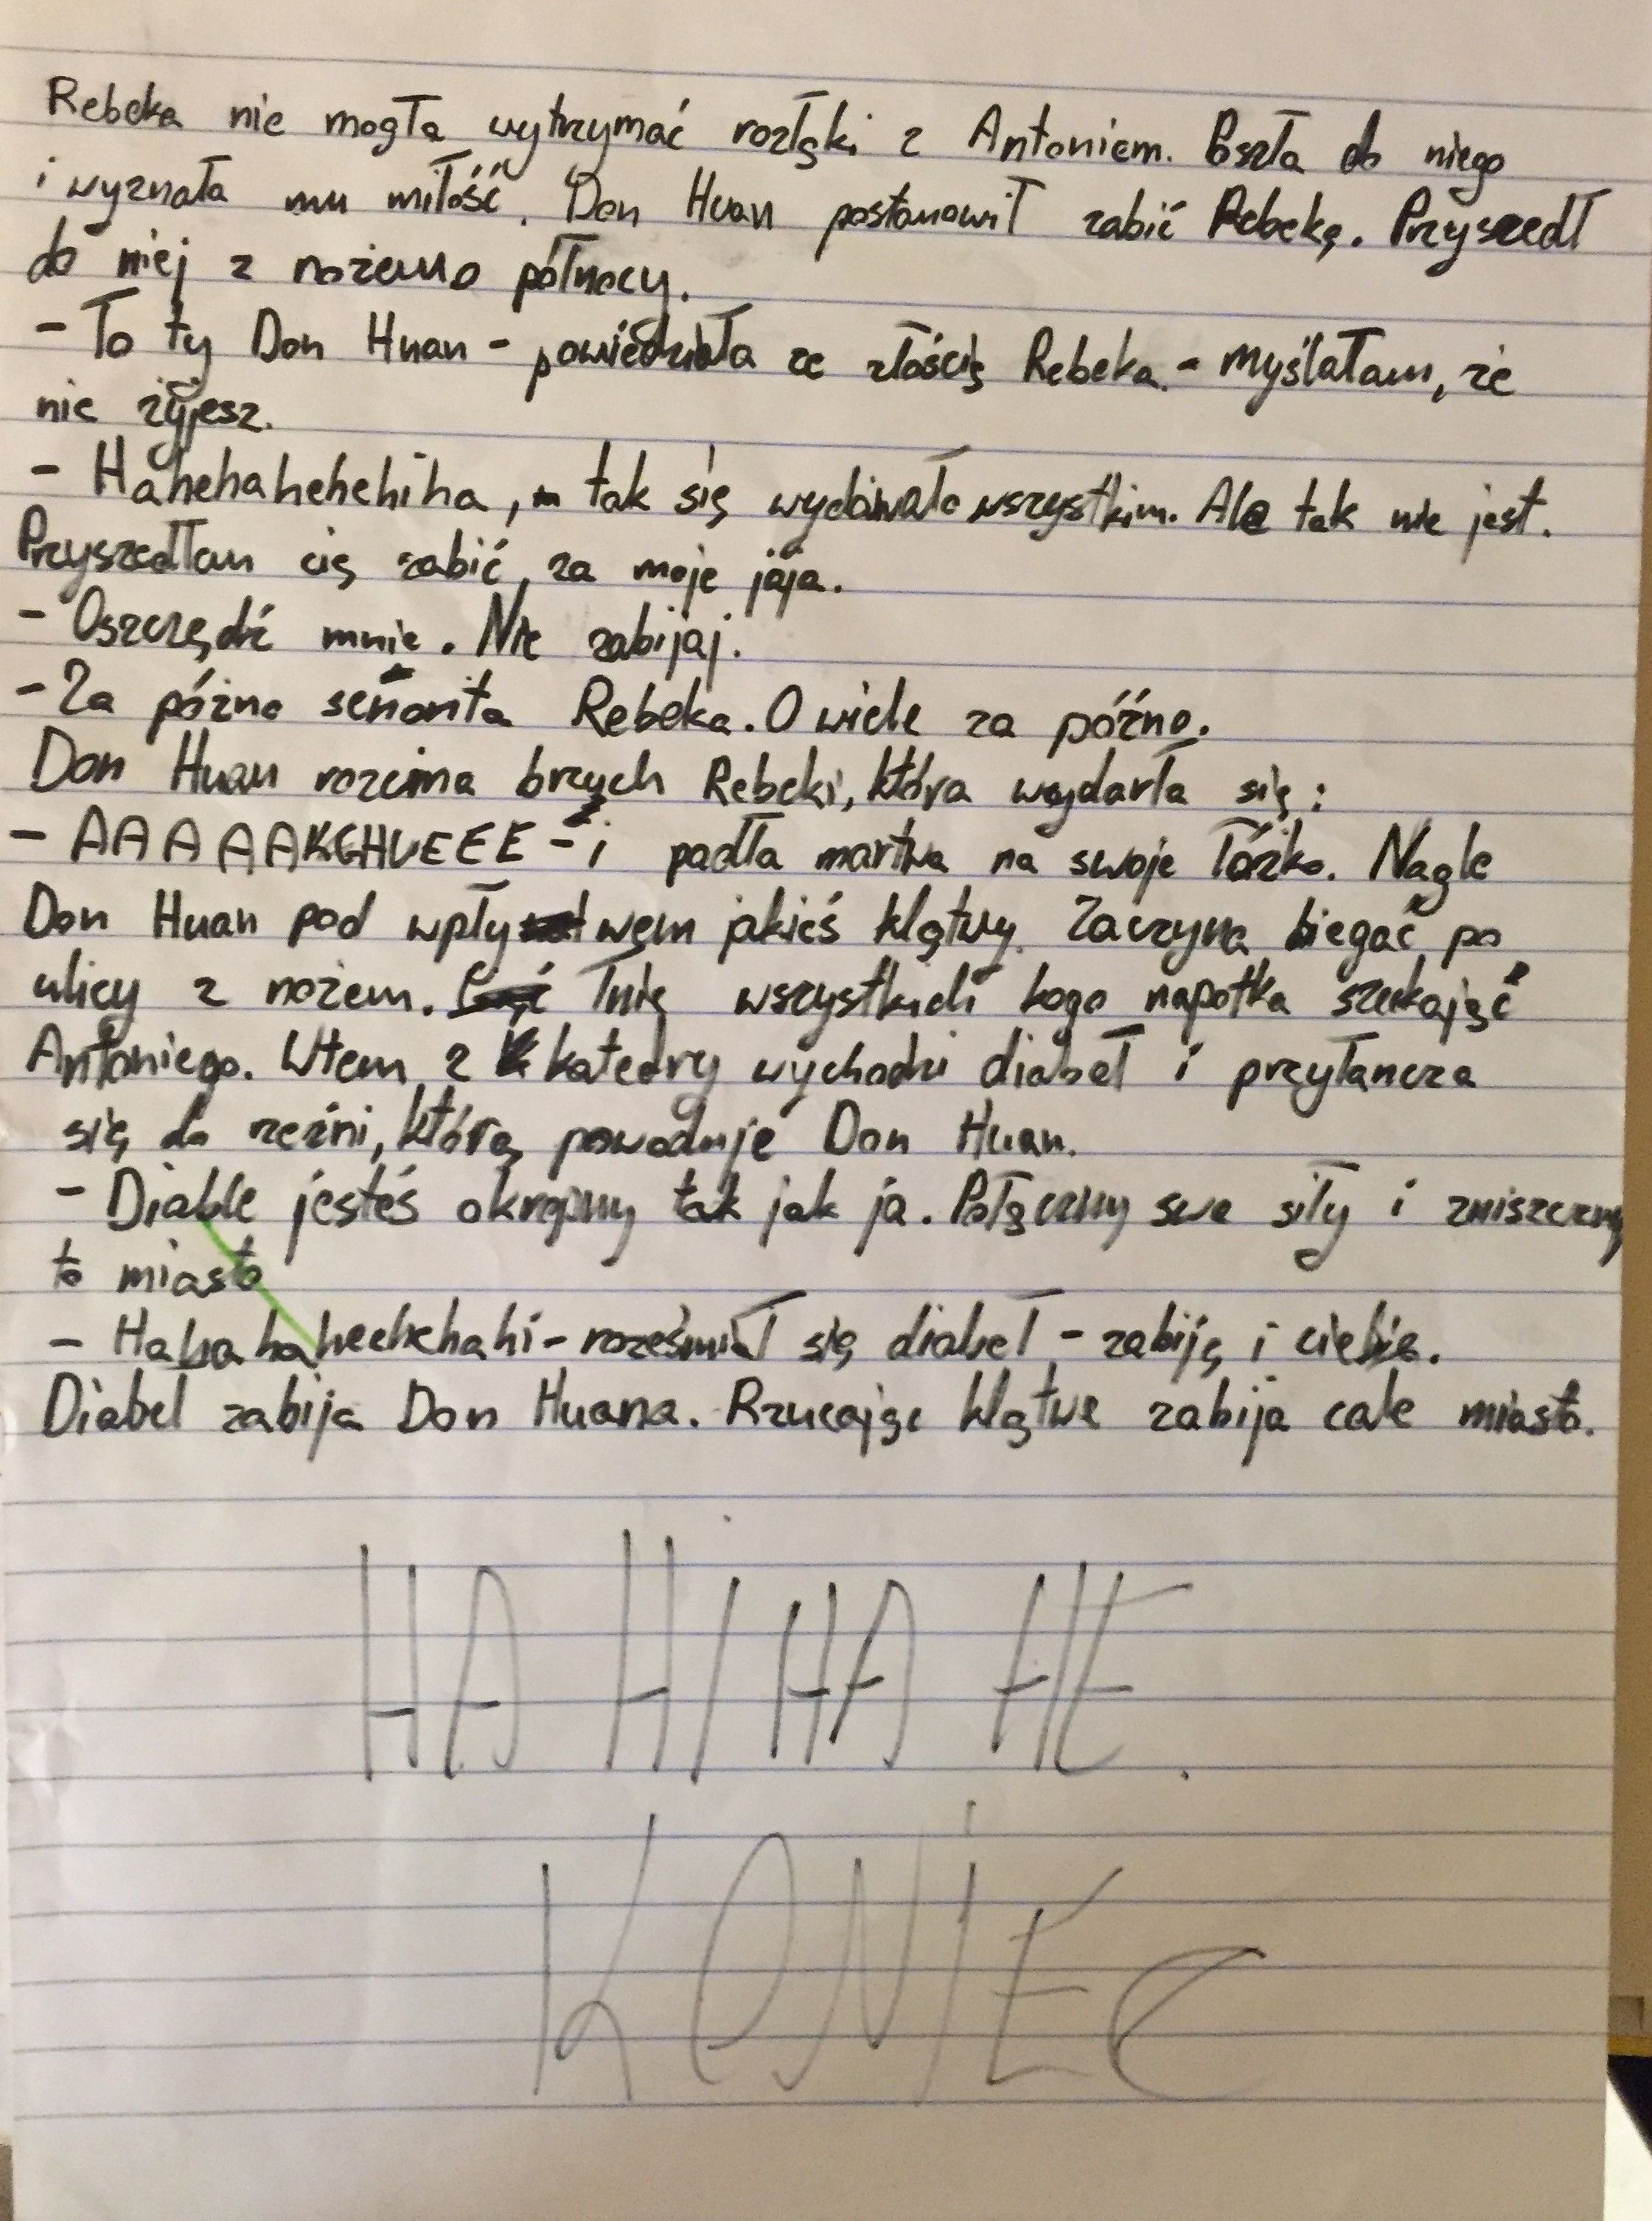 Rebeka nie mogła wytrzymać rozłąki z Antoniem. Poszła do niego
i wyznała mu miłość. Don Huan postanowił zabić Rebekę. Przyszedł
do niej z nożem o północy.
- To ty Don Huan - powiedziała ze złością Rebeka. - Myślałam, że
nie żyjesz.
- Hahehahehehiha, tak się wydawało wszystkim. Ale tak nie jest.
Przyszedłem cię zabić, za moje jaja.
- Oszczędź mnie. Nie zabijaj.
- Za późno señorita Rebeka. O wiele za późno.
Don Huan rozcina brzuch Rebeki, która wydarła się:
- AAAAAKGHUEEE - i padła martwa na swoje łóżko. Nagle
Don Huan pod wpływem jakieś klątwy. Zaczyna biegać po
ulicy z nożem. Tnię wszystkich kogo napotka szukając
Antoniego. Wtem z katedry wychodzi diabeł i przyłancza
się do rzeźni, którą powoduje Don Huan.
- Diable jesteś okrojny tak jak ja. Połączmy swe siły i zniszczmy
to miasto
- Hahahaheehehahi - roześmiał się diabeł - zabiję i ciebie.
Diabel zabija Don Huana. Rzucając klątwe zabija cale miasto.
HA HI HA HE.
KONIEC